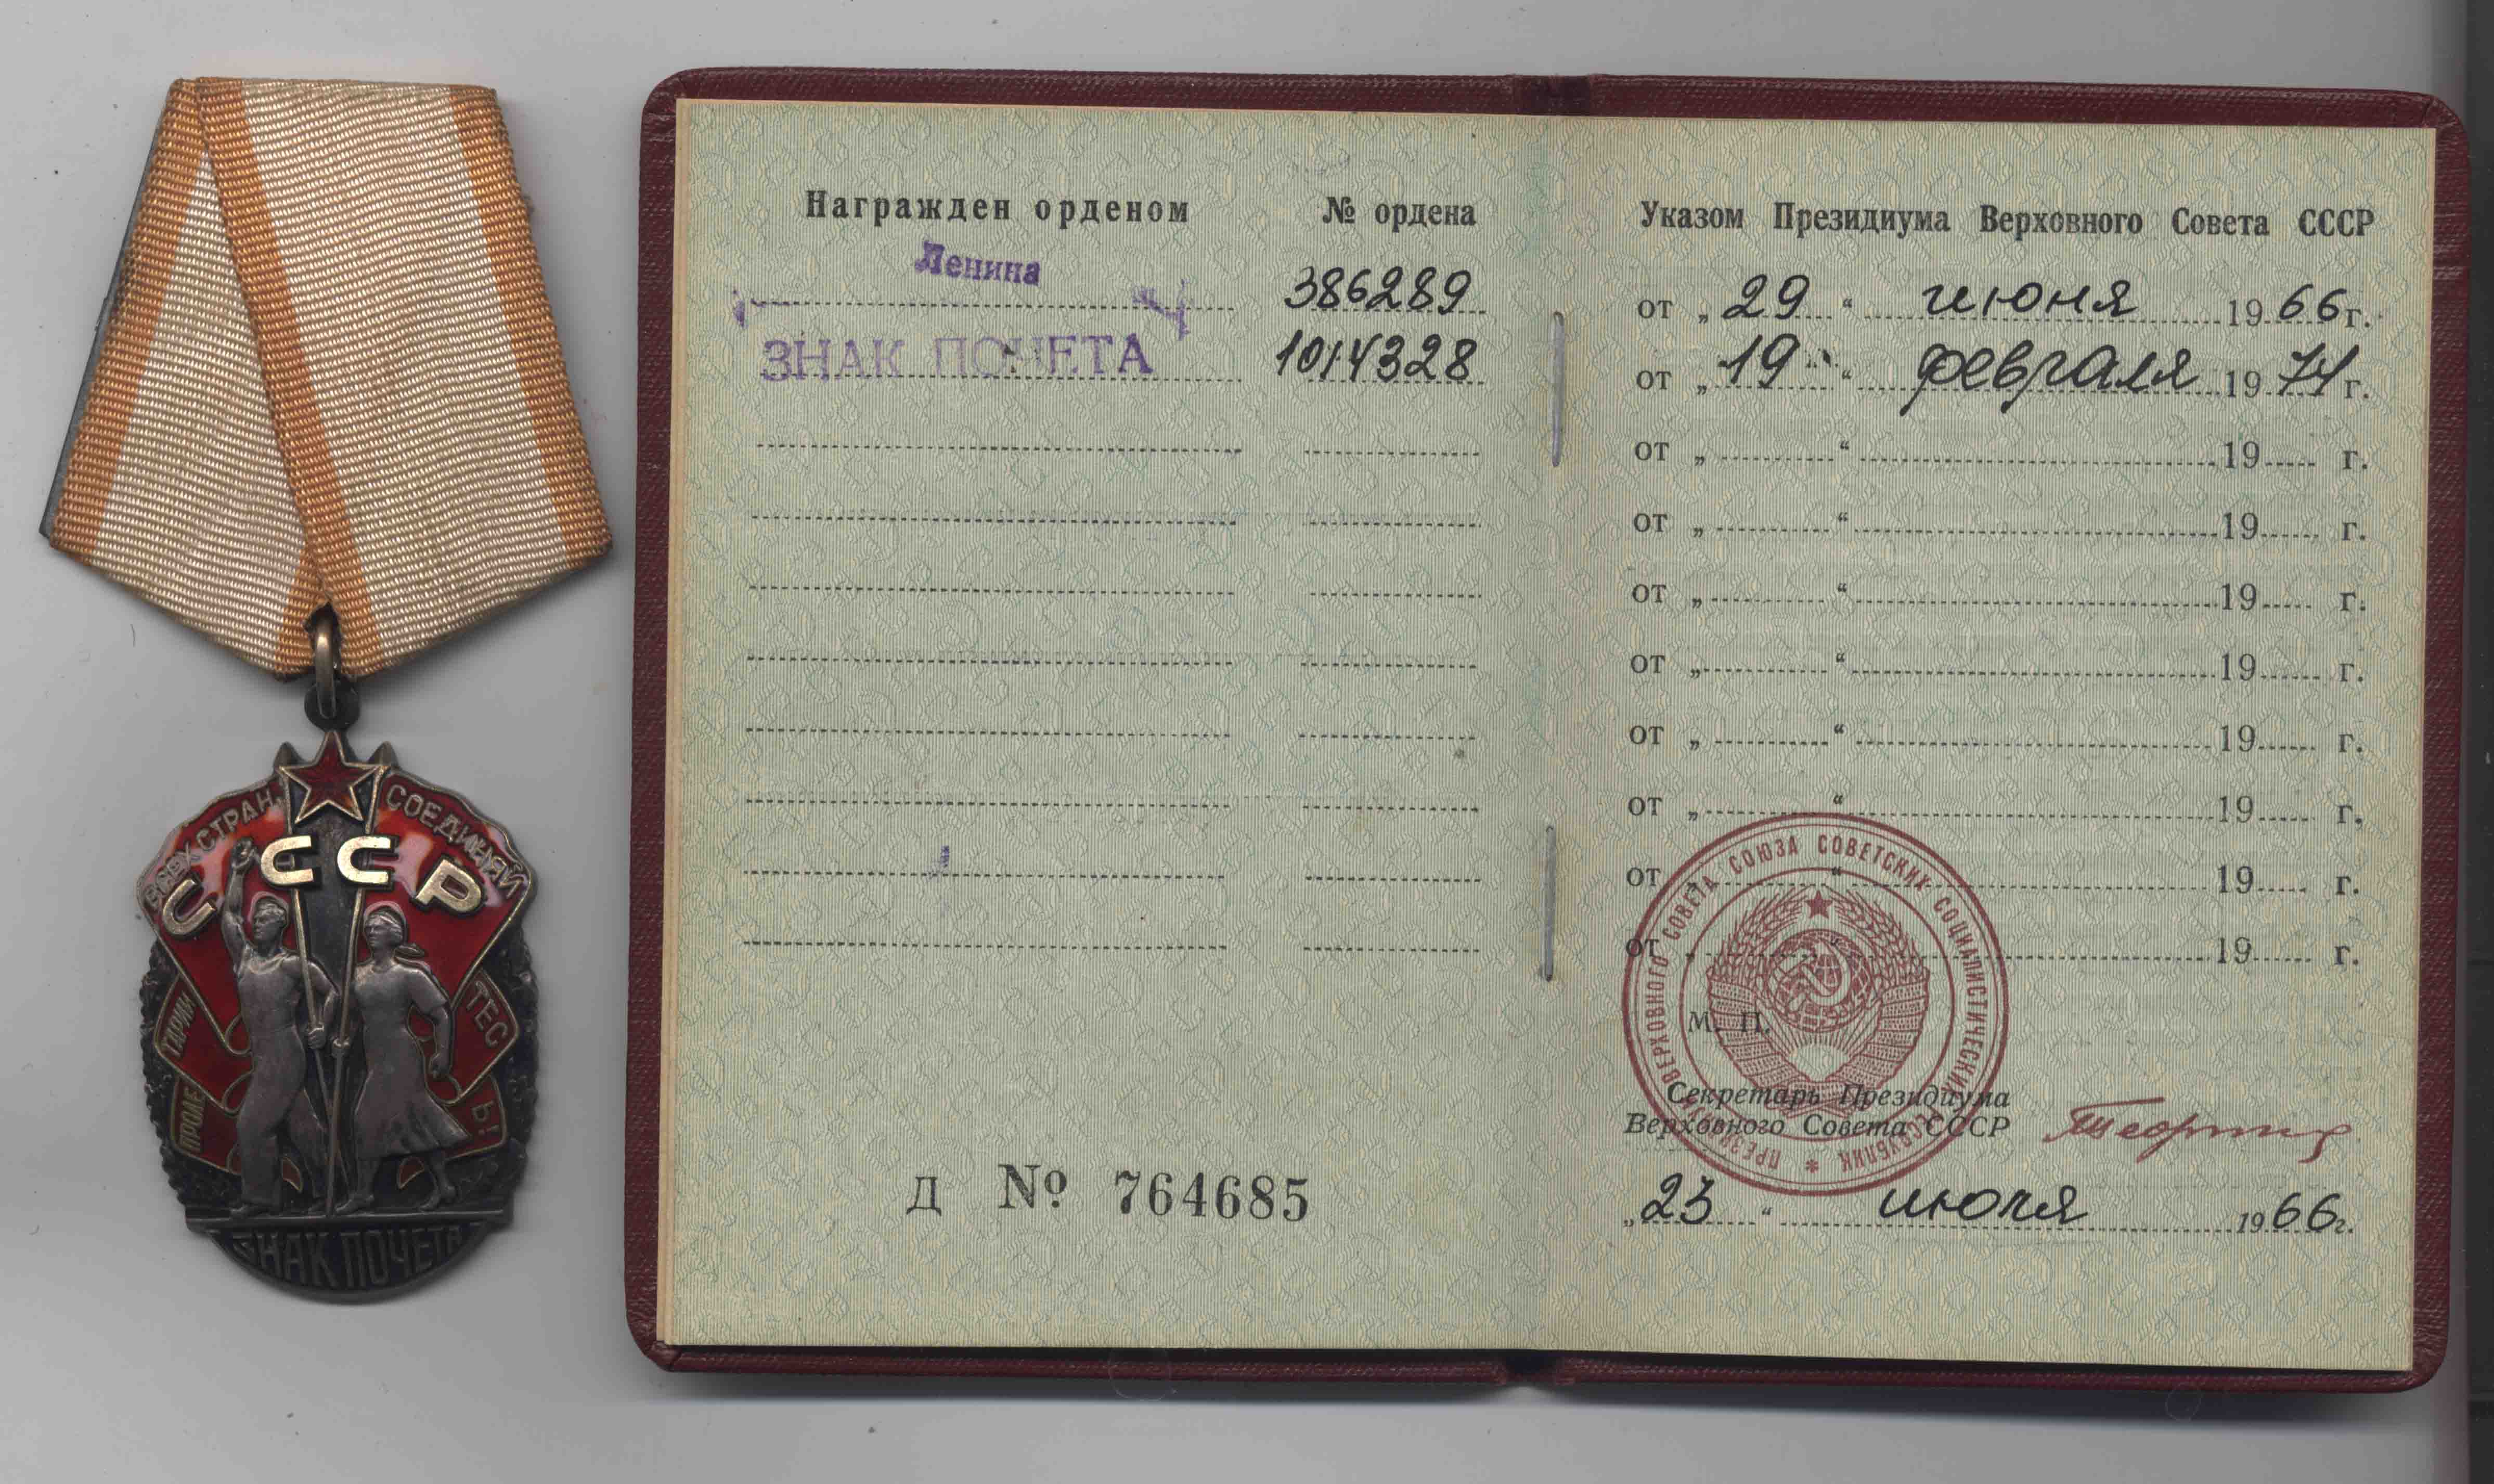 ВСЕХ СТРАН, СОЕДИНЯЙ
СССР
ПРОЛЕ
ТАРИИ
ТЕС
Ь!
ЗНАК ПОЧЕТА
Награжден орденом № ордена
Ленина 386289
ЗНАК ПОЧЕТА 1014328
Д № 764685
Указом Президиума Верховного Совета СССР
от „29“ июня 1966 г.
от „19“ февраля 1974 г.
от „ “ 19 г.
от „ “ 19 г.
от „ “ 19 г.
от „ “ 19 г.
от „ “ 19 г.
от „ “ 19 г.
от „ “ 19 г.
от „ “ 19 г.
ПРЕЗИДИУМ ВЕРХОВНОГО СОВЕТА СОЮЗА СОВЕТСКИХ СОЦИАЛИСТИЧЕСКИХ РЕСПУБЛИК *
М. П.
Секретарь Президиума
Верховного Совета СССР
„23“ июля 1966 г.